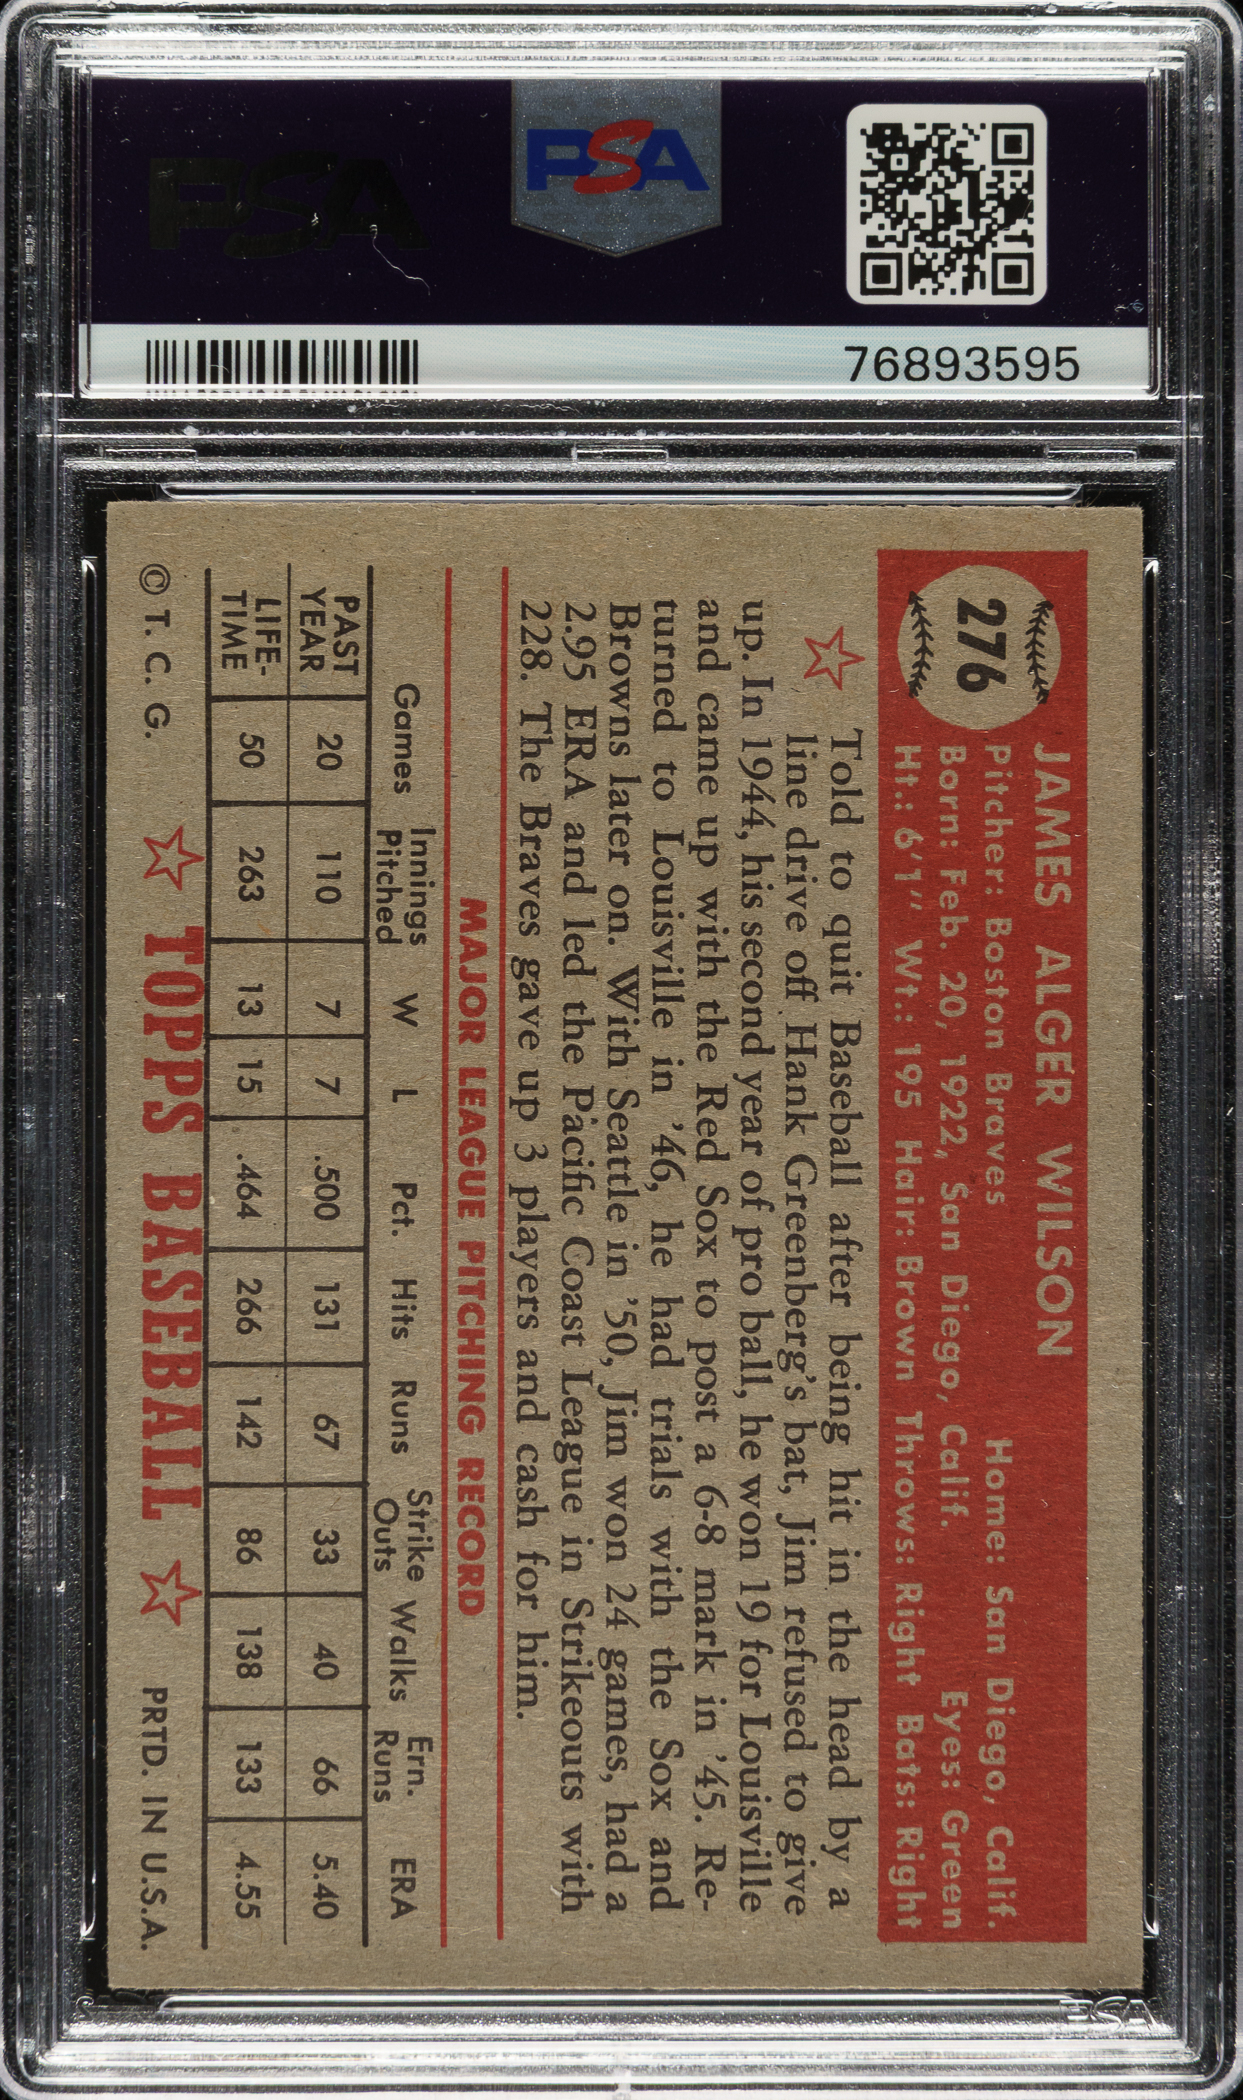 PSA
PSA
76893595
276
JAMES ALGER WILSON
Pitcher: Boston Braves Home: San Diego, Calif.
Born: Feb. 20, 1922, San Diego, Calif. Eyes: Green
Ht.: 6'1" Wt.: 195 Hair: Brown Throws: Right Bats: Right
Told to quit Baseball after being hit in the head by a
line drive off Hank Greenberg's bat, Jim refused to give
up. In 1944, his second year of pro ball, he won 19 for Louisville
and came up with the Red Sox to post a 6-8 mark in '45. Re-
turned to Louisville in '46, he had trials with the Sox and
Browns later on. With Seattle in '50, Jim won 24 games, had a
2.95 ERA and led the Pacific Coast League in Strikeouts with
228. The Braves gave up 3 players and cash for him.
MAJOR LEAGUE PITCHING RECORD
Games Innings Pitched W L Pct. Hits Runs Strike Outs Walks Ern. Runs ERA
PAST YEAR 20 110 7 7 .500 131 67 33 40 66 5.40
LIFE-TIME 50 263 13 15 .464 266 142 86 138 133 4.55
© T. C. G. TOPPS BASEBALL PRTD. IN U.S.A.
PSA